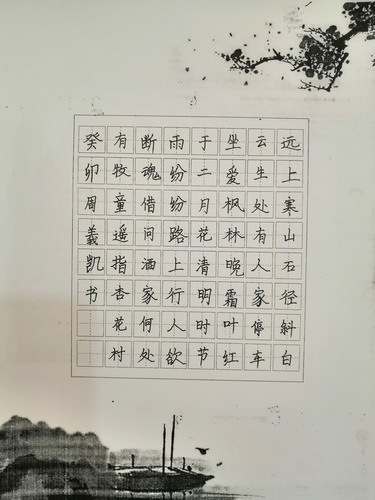 远上寒山石径斜白
云生处有人家停车
坐爱枫林晚霜叶红
于二月花清明时节
雨纷纷路上行人欲
断魂借问酒家何处
有牧童遥指杏花村
癸卯周義凯书